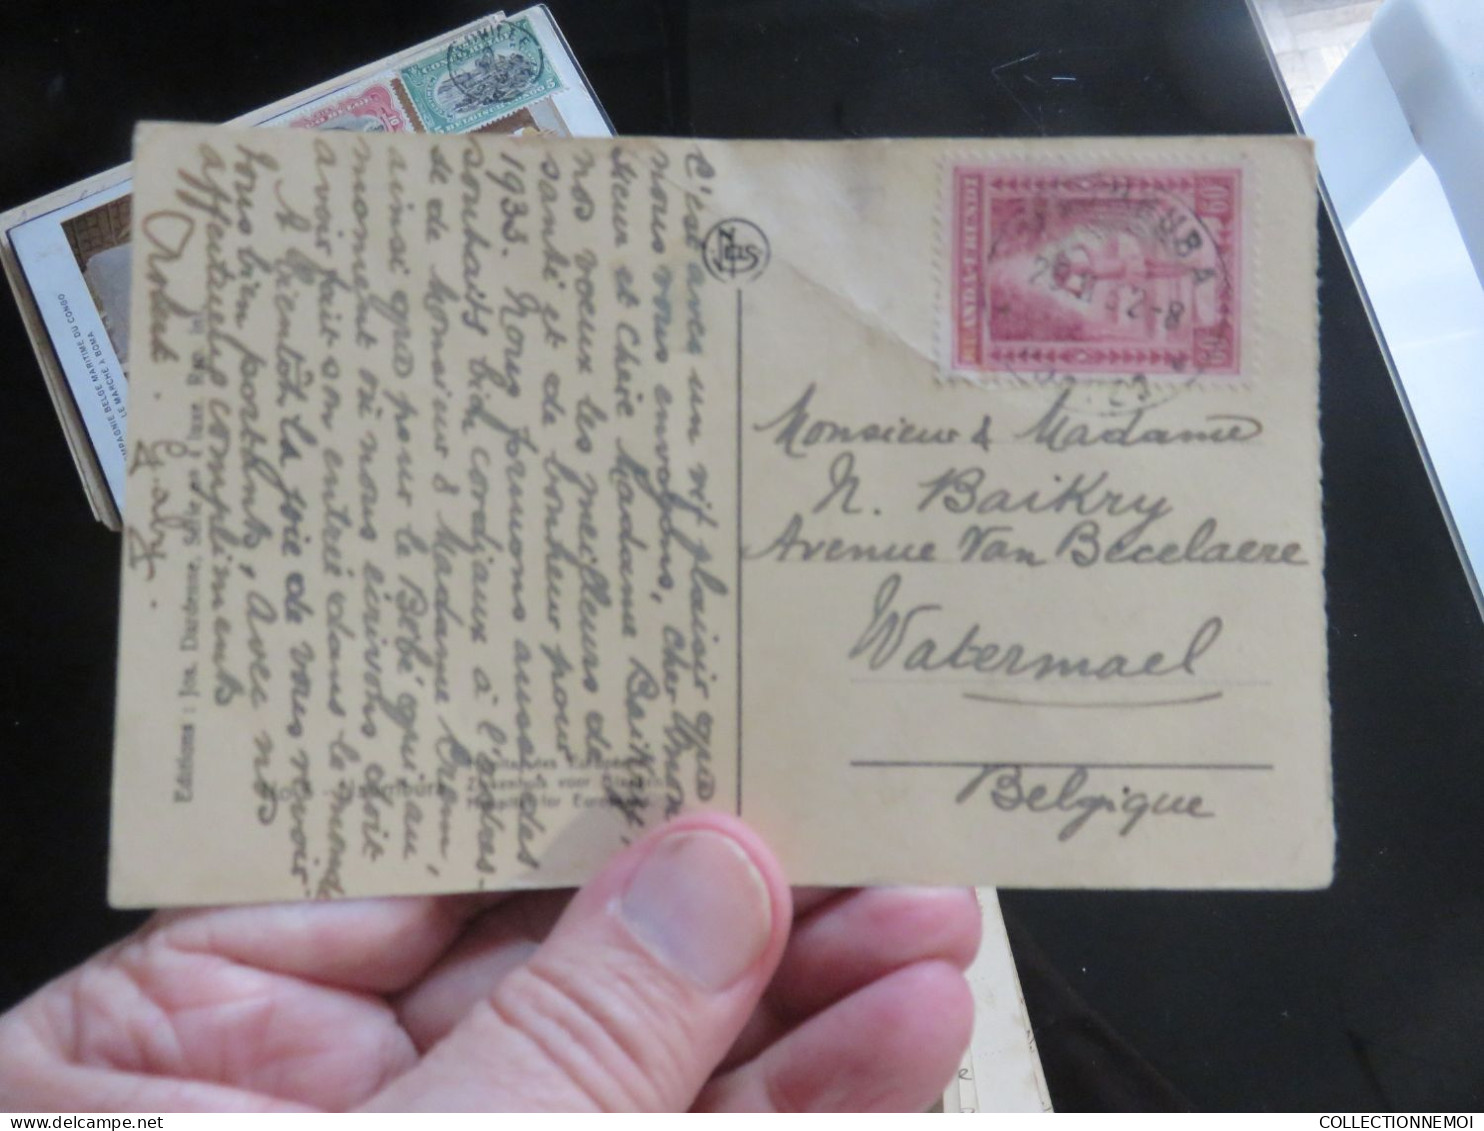 C'est avec un vif plaisir que
nous vous envoyons, cher Mon
sieur et chère Madame Baikry,
nos voeux les meilleurs de
santé et de bonheur pour
1933. Nous formons aussi des
souhaits bien cordiaux à l'adres-
se de Monsieur & Madame
ainsi que pour le Bébé qui au
moment où nous écrivons doit
avoir fait son entrée dans le monde
A bientôt la joie de vous revoir
tous bien portants, avec nos
affectueux compliments
Editions : Jos. Dardenne,
NELS
RUANDA-URUNDI
60
60
Monsieur & Madame
N. Baikry
Avenue Van Becelaere
Watermael
Belgique
CONGO BELGE
BELGISCH CONGO
5
10
COMPAGNIE BELGE MARITIME DU CONGO
LE MARCHÉ À BOMA
COLLECTIONNEMOI